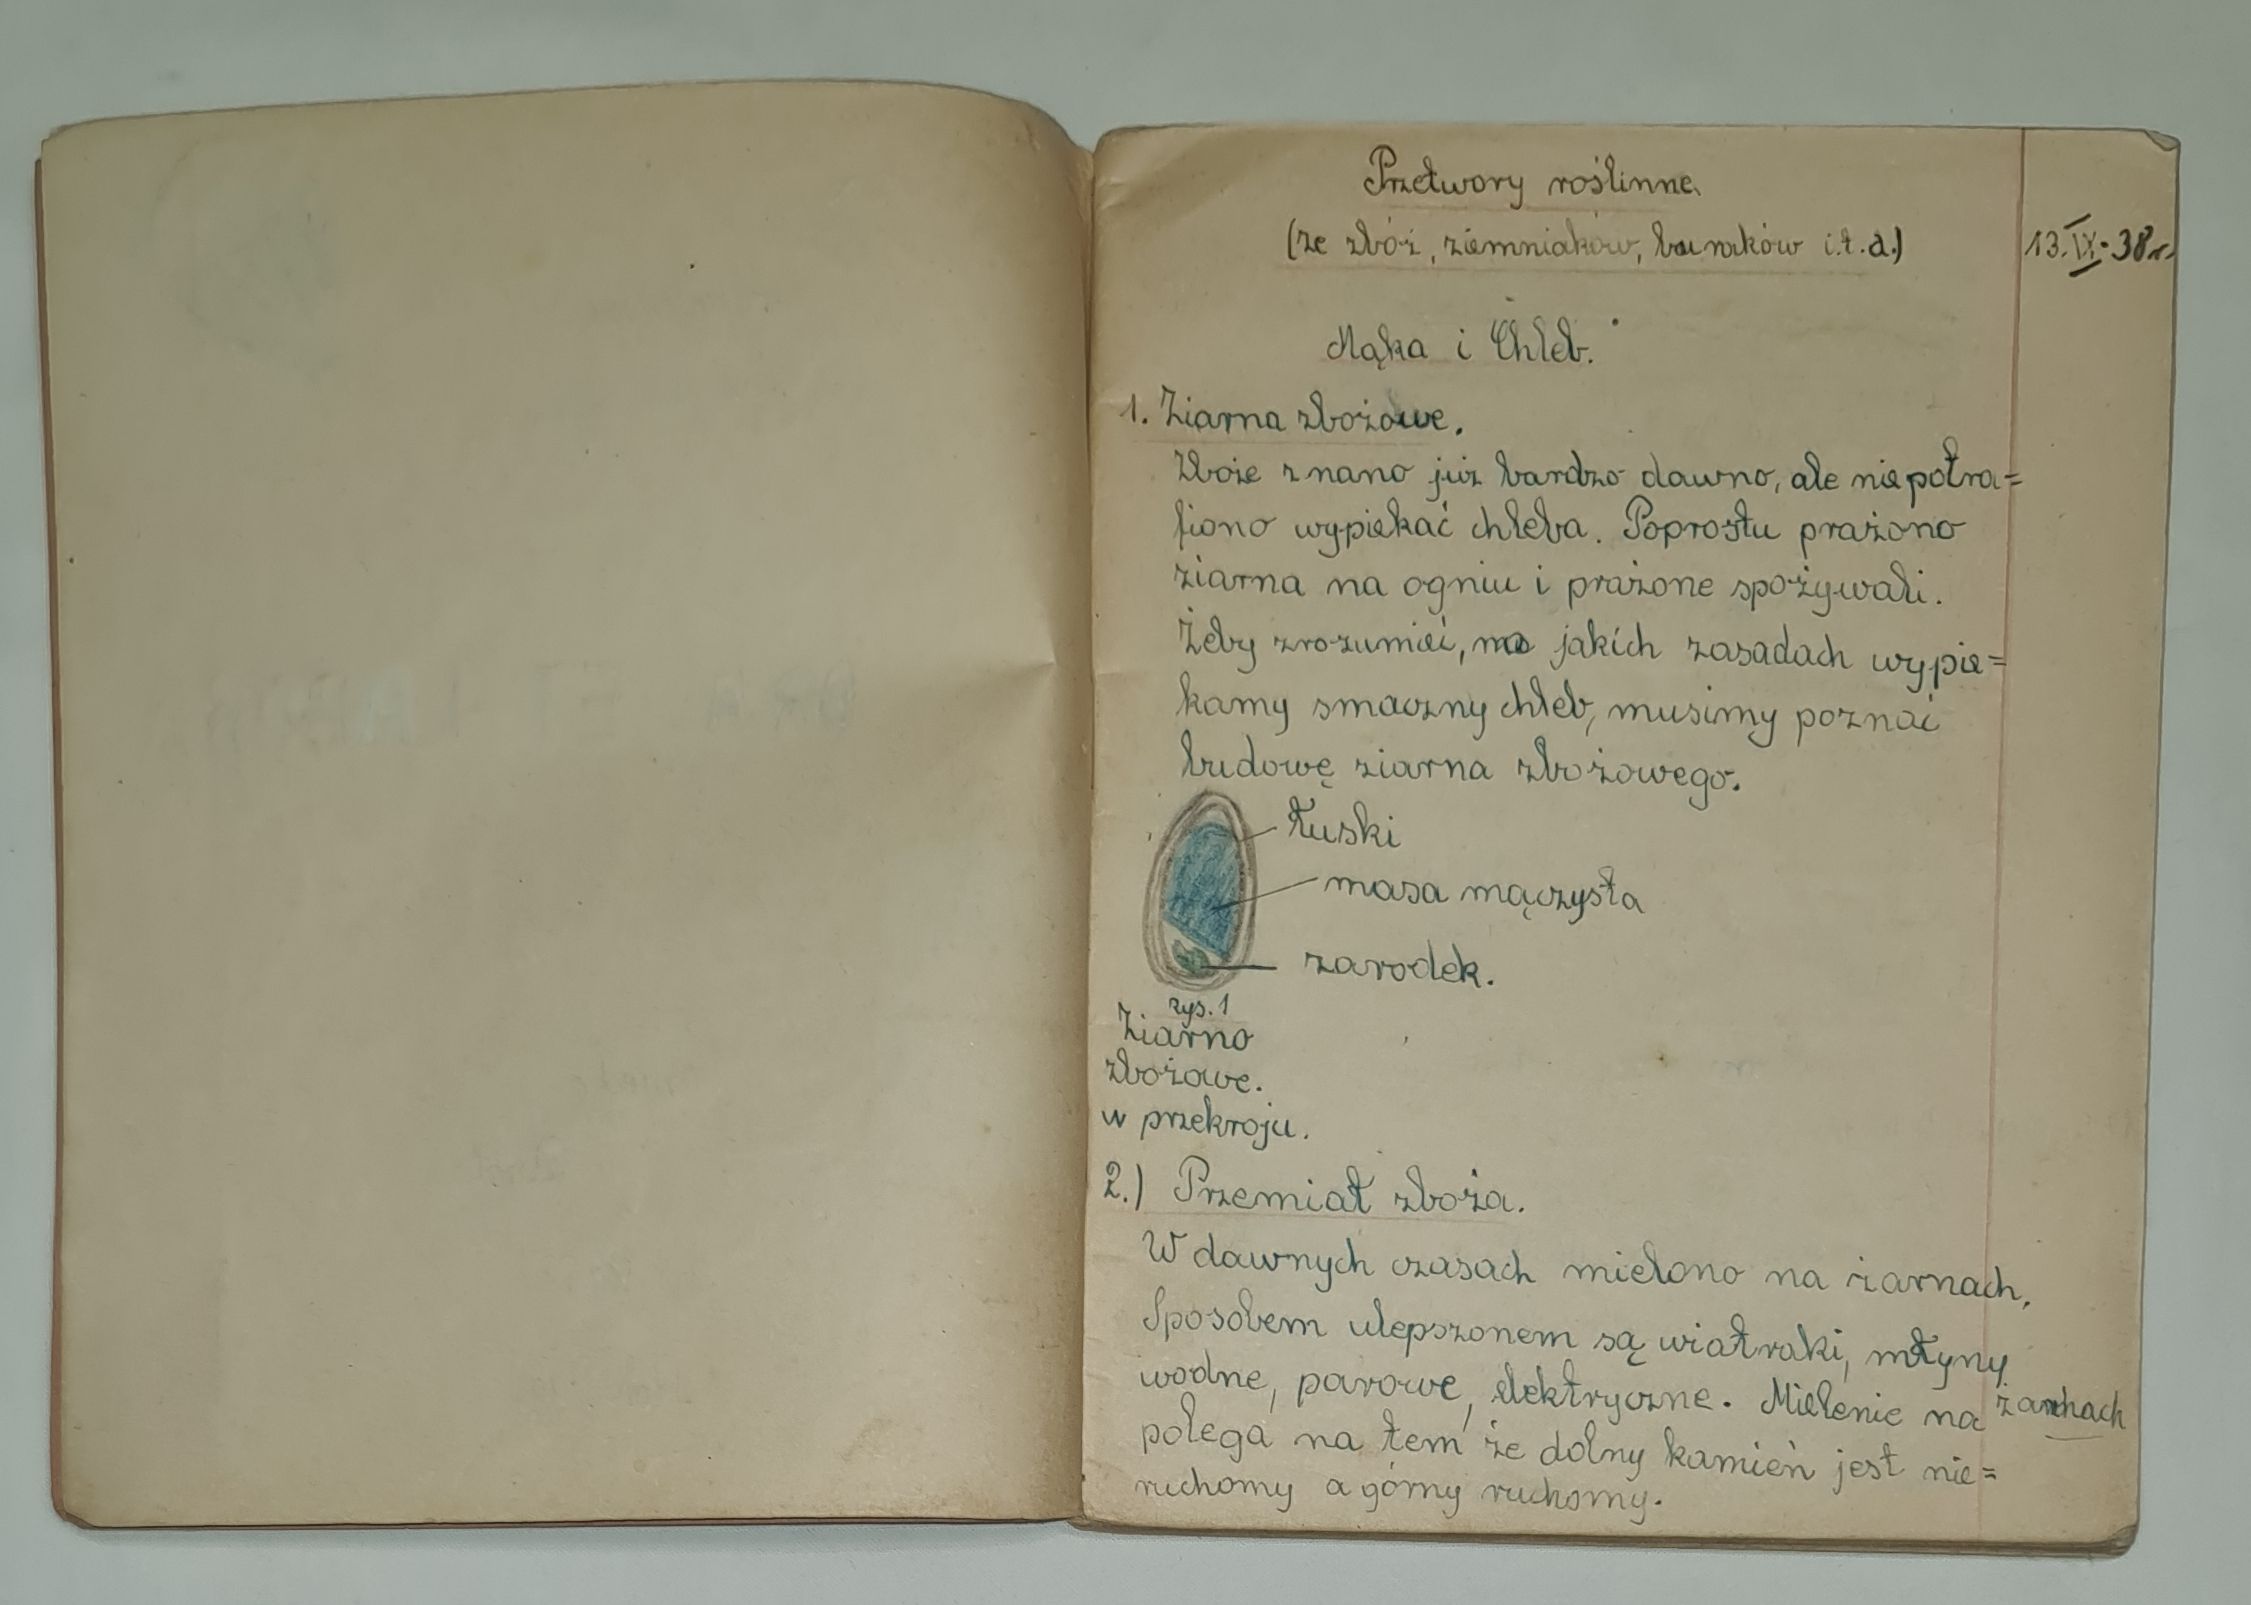 Przetwory roślinne.
(ze zbóż, ziemniaków, buraków i.t.d.)
13.IX-38r.
Mąka i Chleb.
1. Ziarna zbożowe.
Zboże znano już bardzo dawno, ale nie potra=
fiono wypiekać chleba. Poprostu prażono
ziarna na ogniu i prażone spożywali.
Żeby zrozumieć, na jakich zasadach wypie=
kamy smaczny chleb, musimy poznać
budowę ziarna zbożowego.
łuski
masa mączysta
zarodek.
rys. 1
Ziarno
zbożowe.
w przekroju.
2.) Przemiał zboża.
W dawnych czasach mielono na żarnach.
Sposobem ulepszonem są wiatraki, młyny
wodne, parowe, elektryczne. Mielenie na żarnach
polega na tem że dolny kamień jest nie=
ruchomy a górny ruchomy.